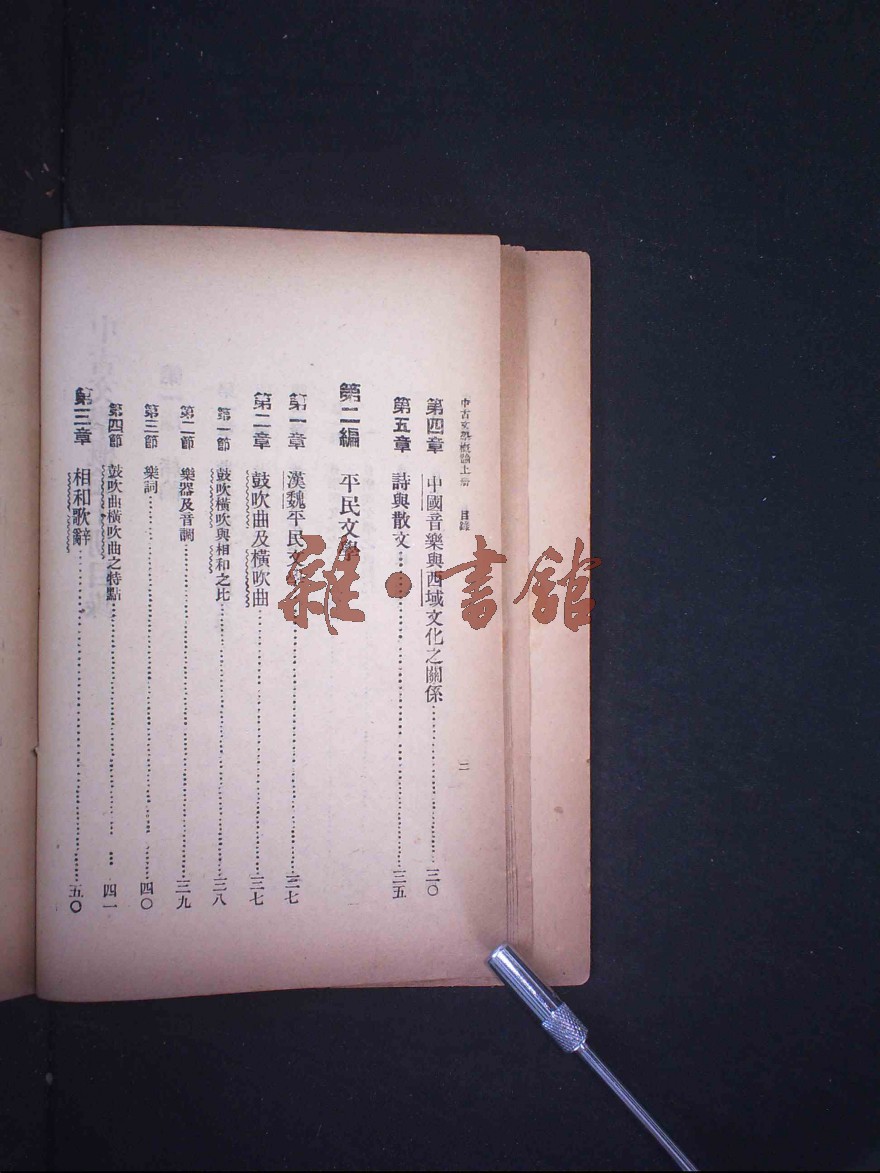 中古文學概論上册 目錄 二
第四章 中國音樂與西域文化之關係 三〇
第五章 詩與散文 三五
第二編 平民文學
第一章 漢魏平民文 三七
第二章 鼓吹曲及橫吹曲 三七
第一節 鼓吹橫吹與相和之比 三八
第二節 樂器及音調 三九
第三節 樂詞 四〇
第四節 鼓吹曲橫吹曲之特點 四一
第三章 相和歌辭 五〇
雜·書館